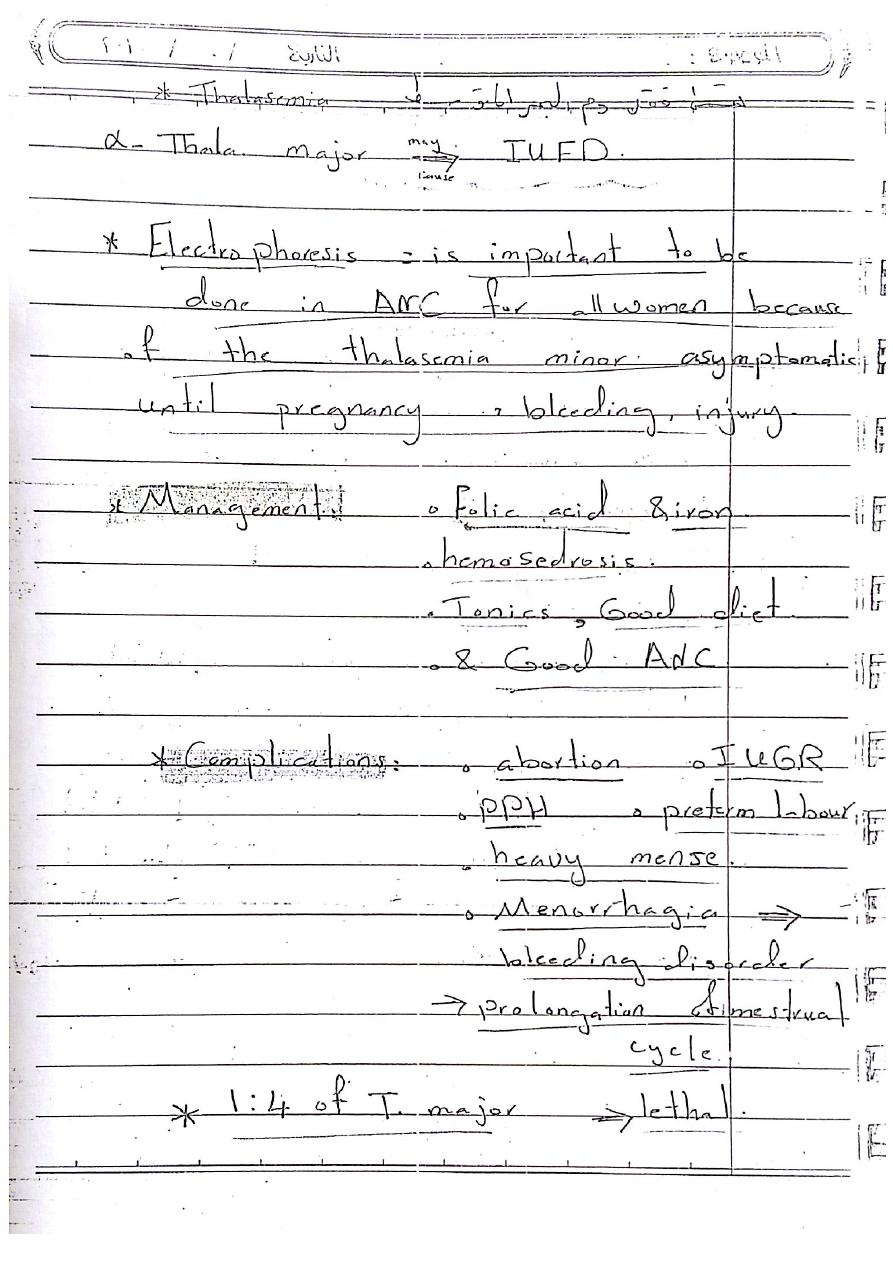 التاريخ / / ٢٠١
الموضوع :
* Thalasemia فقر دم البحر
α- Thala. major may cause ⇒ IUFD.
* Electrophoresis = is important to be
done in ANC for all women because
of the thalasemia minor asymptomatic
until pregnancy , bleeding, injury.
* Management: • Folic acid & iron
• hemosedrosis.
• Tonics, Good diet
• & Good ANC
* Complications: • abortion • IUGR
• PPH • preterm labour
• heavy mense.
• Menorrhagia ⇒
bleeding disorder
→ prolongation of mestrual
cycle.
* 1:4 of T. major ⇒ lethal.